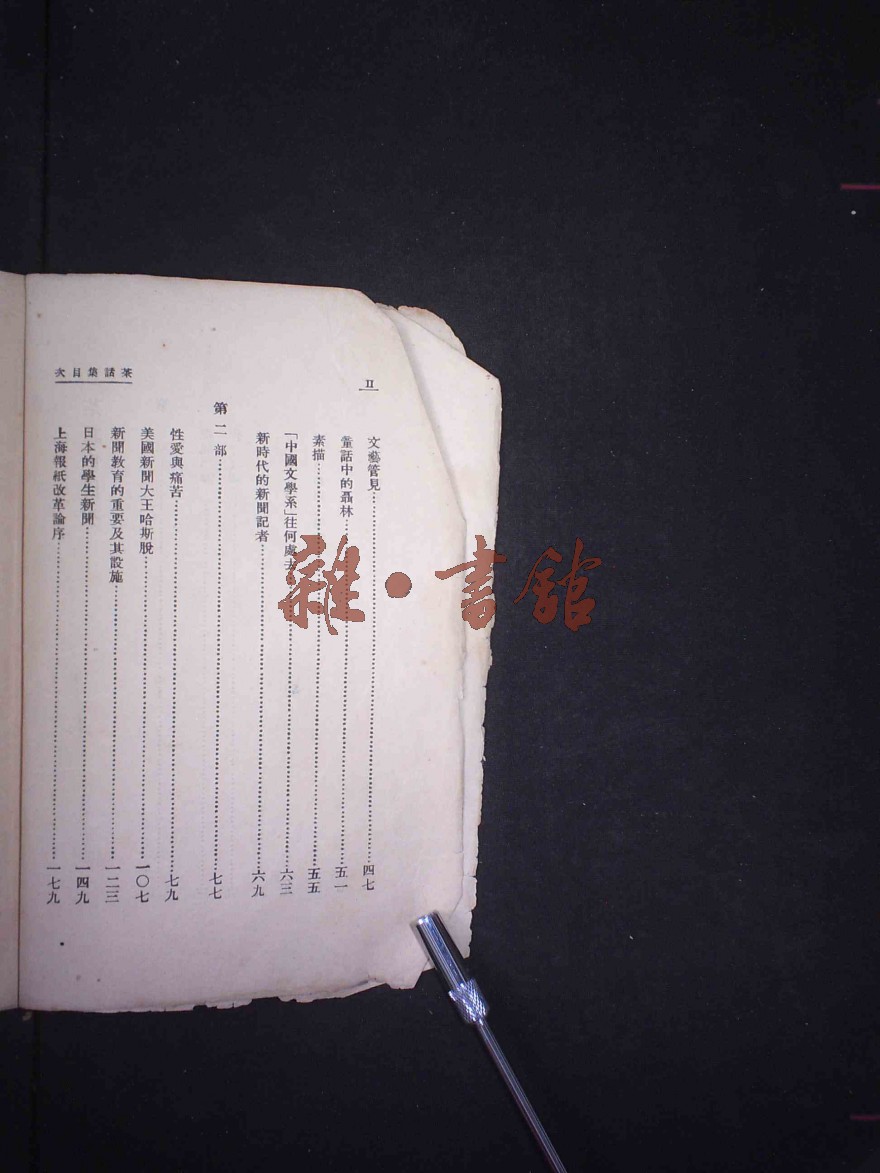 II
茶話集目次
文藝管見……四七
童話中的聶林……五一
素描……五五
「中國文學系」往何處去……六三
新時代的新聞記者……六九
第二部……七七
性愛與痛苦……七九
美國新聞大王哈斯脫……一〇七
新聞教育的重要及其設施……一二三
日本的學生新聞……一四九
上海報紙改革論序……一七九
雜·書館